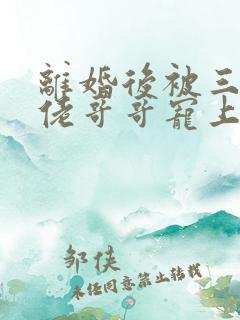 離婚後被三
佬哥哥寵上
邹侠
未经同意禁止转载